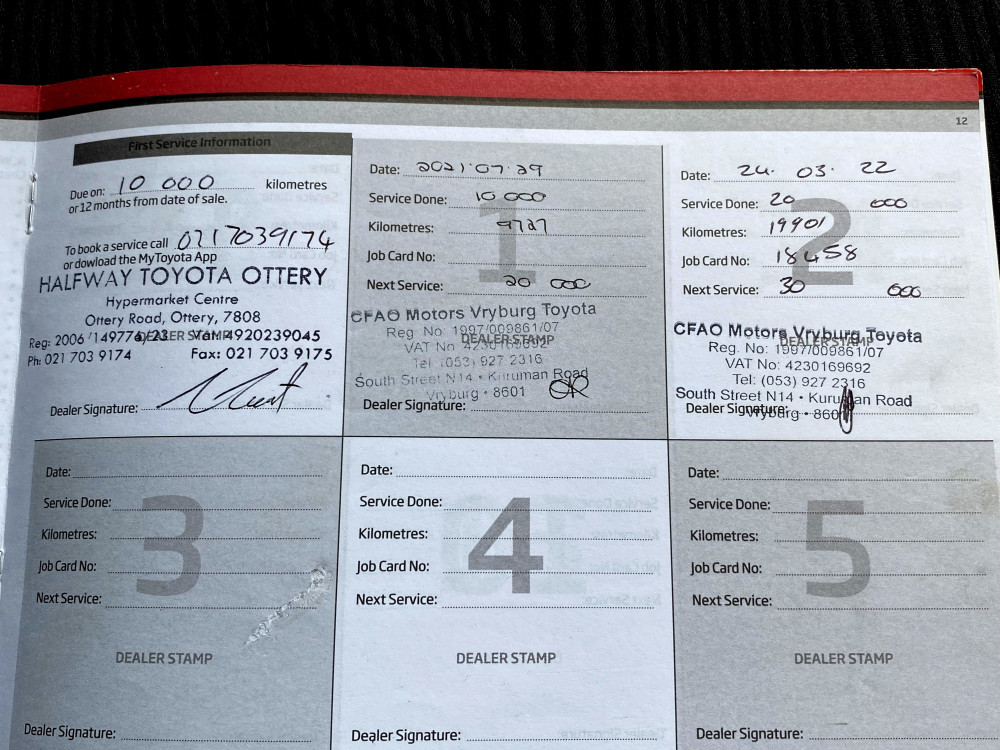 12
First Service Information
Due on: 10 000 kilometres
or 12 months from date of sale.
To book a service call 0217039174
or dowload the MyToyota App
HALFWAY TOYOTA OTTERY
Hypermarket Centre
Ottery Road, Ottery, 7808
Reg: 2006/149774/23 DEALER STAMP Vat: 4920239045
Ph: 021 703 9174 Fax: 021 703 9175
Dealer Signature:
1
Date: 2021.07.29
Service Done: 10 000
Kilometres: 9727
Job Card No:
Next Service: 20 000
CFAO Motors Vryburg Toyota
Reg. No: 1997/009861/07
DEALER STAMP
VAT No: 4230169692
Tel: (053) 927 2316
South Street N14 • Kuruman Road
Vryburg • 8601
Dealer Signature:
2
Date: 24. 03. 22
Service Done: 20 000
Kilometres: 19901
Job Card No: 18458
Next Service: 30 000
CFAO Motors Vryburg Toyota
DEALER STAMP
Reg. No: 1997/009861/07
VAT No: 4230169692
Tel: (053) 927 2316
South Street N14 • Kuruman Road
Dealer Signature:
Vryburg • 8601
3
Date:
Service Done:
Kilometres:
Job Card No:
Next Service:
DEALER STAMP
Dealer Signature:
4
Date:
Service Done:
Kilometres:
Job Card No:
Next Service:
DEALER STAMP
Dealer Signature:
5
Date:
Service Done:
Kilometres:
Job Card No:
Next Service:
DEALER STAMP
Dealer Signature: